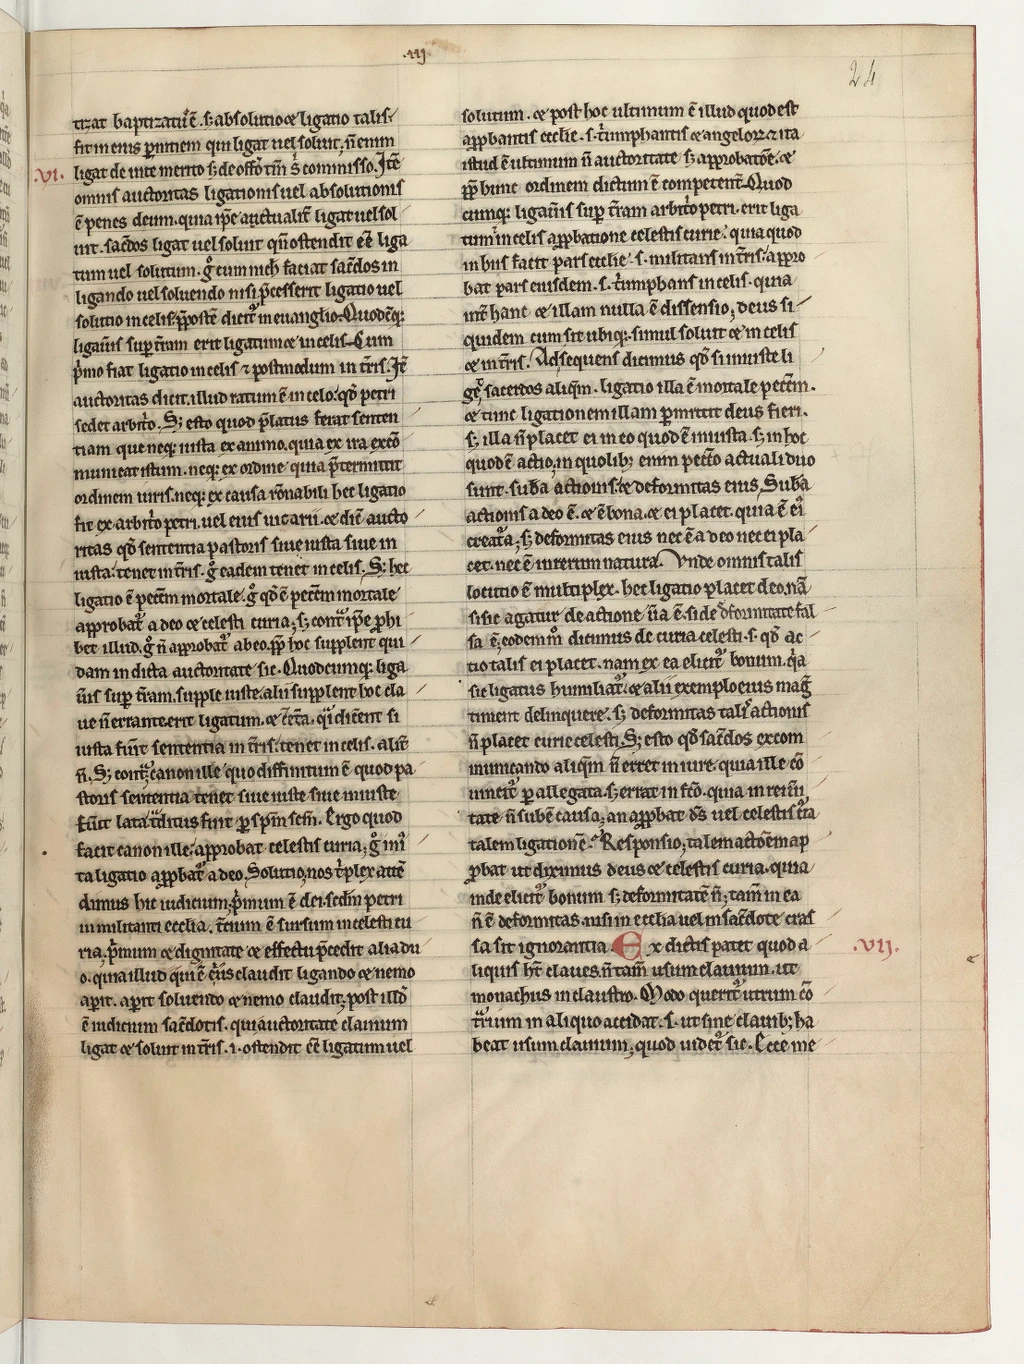 .iij.
24
tizat baptizatũ ẽ. s; absolutio ⁊ ligatio talis
fit in eius ꝑnitiem qui ligat uel soluit, ñ enim
.VI. ligat de iure merito s; de offõ tm̃ s̉ commisso. Itẽ
omnis auctoritas ligationis uel absolutionis
ẽ penes deum. quia ip̃e auctualit̃ ligat uel sol
uit. sac̃dos ligat uel soluit qñ ostendit eẽ liga
tum uel solutum. g̊ cum nich̃ faciat sac̃dos in
ligando uel soluendo nisi p̃cesserit ligatio uel
solutio in celis.
ligau̾is sup t̃ram erit ligatum ⁊ in celis. Cum
p̾mo fiat ligatio in celis ⁊ postmodum in t̃ris. It̃
auctoritas dicit. illud ratum ẽ in celo. qđ petri
sedet arbit̾o. S; esto quod p̃latus ferat senten
tiam que neq; iusta ex animo. quia ex ira excõ
municat istum. neq; ex ordine quia p̃termittit
ordinem iuris. neq; ex causa rõnabili hec ligatio
fit ex arbit̾o petri. uel eius uicarii. ⁊ dic̃ aucto
ritas qđ sententia pastoris siue iusta siue in
iusta. tenet in t̃ris. g̊ eadem tenet in celis. S; hec
ligatio ẽ pecc̃m mortale. g̊ qđ ẽ pecc̃m mortale
approbat̃ a deo ⁊ celesti curia; s; cont̾ ip̃e ꝓhi
bet illud. g̊ ñ approbat̃ ab eo. ꝓp̃ hoc supplent qui
dam in dicta auctoritate sic. Quodcumq; liga
u̾is sup t̃ram. supple iuste. alii supplent hoc cla
ue ñ errante. erit ligatum. ⁊ c̃et̃a. qi dicent si
iusta fuit sententia in t̃ris. tenet in celis. alit̃
ñ. S; cont̾ canon ille quo diffinitum ẽ quod pa
storis sententia tenet siue iuste siue iniuste
fu̾it lata. ꝑ sp̃m sc̃m. Ergo quod
facit canon ille. approbat celestis curia; g̊ iniũ
ta ligatio apꝓbat̃ a deo. Solutio; nos t̾plex attẽ
dimus hic iudicium; p̾mum ẽ dei. scđm petri
in militanti ecclia. t̃cium ẽ sursum in celesti cu
ria. p̾mum ⁊ dignitate ⁊ effectu p̃cedit alia du
o. quia illud claudit ligando ⁊ nemo
aꝑit. aꝑit soluendo ⁊ nemo claudit; post illđ
ẽ iudicium sac̃dotis. qui auctoritate clauium
ligat ⁊ soluit in t̃ris. .i. ostendit eẽ ligatum uel
solutum. ⁊ post hoc ultimum ẽ illud quod est
apꝓbantis ecclie. s. t̾umphantis ⁊ angeloꝝ. ⁊ ita
istud ẽ ultimum ñ auctoritate s; approbatõe. ⁊
ꝓp̃ hunc ordinem dictum ẽ competent̃. Quod
cumq; ligau̾is sup t̃ram arbit̾o petri. erit liga
tum in celis apꝓbatione celestis curie. quia quod
in hiis facit pars ecclie. s. militans in t̃ris. appro
bat pars eiusdem. s. t̾umphans in celis. quia
int̃ hanc ⁊ illam nulla ẽ dissensio; deus si
quidem cum sit ubiq;. simul soluit ⁊ in celis
⁊ in t̃ris. Ad sequens dicimus qđ si iniuste li
get̃ sacerdos aliq̃m. ligatio illa ẽ mortale pecc̃m.
⁊ tunc ligationem illam ꝑmittit deus fieri.
s; illa ñ placet ei in eo quod ẽ iniusta. s; in hoc
quod ẽ actio. in quolib; enim pecc̃o actuali duo
sunt. sub̃a actionis. ⁊ deformitas eius. Sub̃a
actionis a deo ẽ. ⁊ ẽ bona. ⁊ ei placet. quia ẽ ei̾
creat̃a; s; deformitas eius nec ẽ a deo nec ei pla
cet. nec ẽ in rerum natura. Vnde omnis talis
locutio ẽ multiplex. hec ligatio placet deo. nã
si sic agatur de actione ũa ẽ. si de d̾formitate fal
sa ẽ; eodem m̊ dicimus de curia celesti. s. qđ ac
tio talis ei placet. nam ex ea elicit̃ bonum. q̾a
sic ligatus humiliat̃. ⁊ alii exemplo eius mag̃
timent delinquere. s; deformitas tali̾ actionis
ñ placet curie celesti. S; esto qđ sac̃dos excom
municando aliq̃m ñ erret in iure. quia ille cõ
uincit̃ ꝑ allegata. s; errat in fc̃o. quia in rei ũi
tate ñ subẽ causa; an apꝓbat ds̃ uel celestis c̃ia
talem ligationẽ. Responsio; talem actõem ap
ꝓbat ut diximus deus ⁊ celestis curia. quia
inde elicit̃ bonum s; deformitatẽ ñ; tam̃ in ea
ñ ẽ deformitas. nisi in ecclia uel in sac̃dote cras
sa sit ignorantia. Ex dictis patet quod a .VII.
liquis ht̃ claues. ñ tam̃ usum clauium. ut
monachus in claustro. Modo querit̃ utrum cõ
t̾rium in aliquo accidat. s. ut sine clauib; ha
beat usum clauium; quod uidet̃ sic. Ecce me